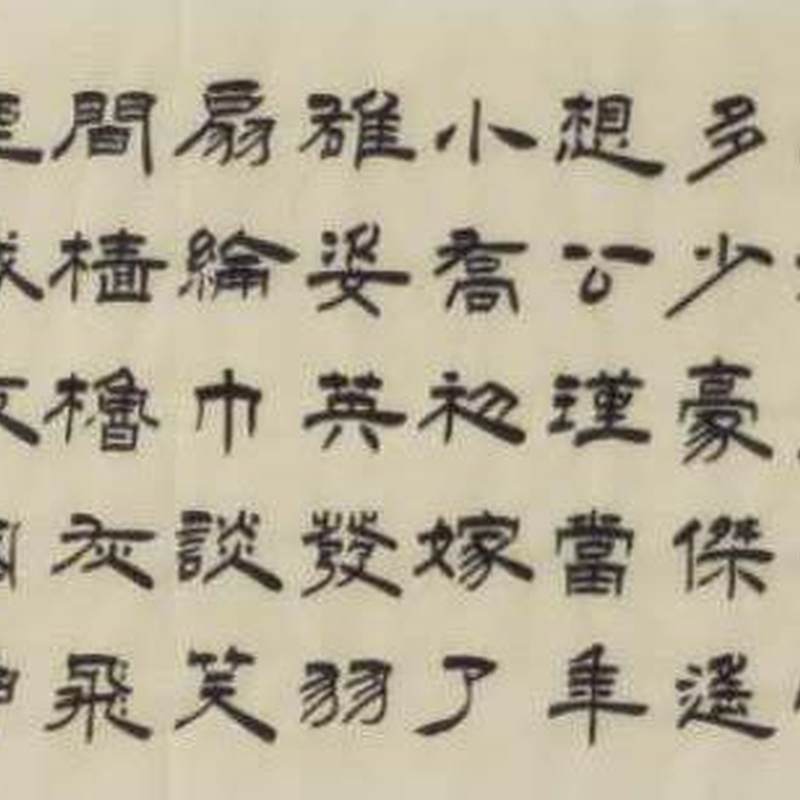 多少豪傑遙
想公瑾當年
小喬初嫁了
雄姿英發羽
扇綸巾談笑
間檣櫓灰飛